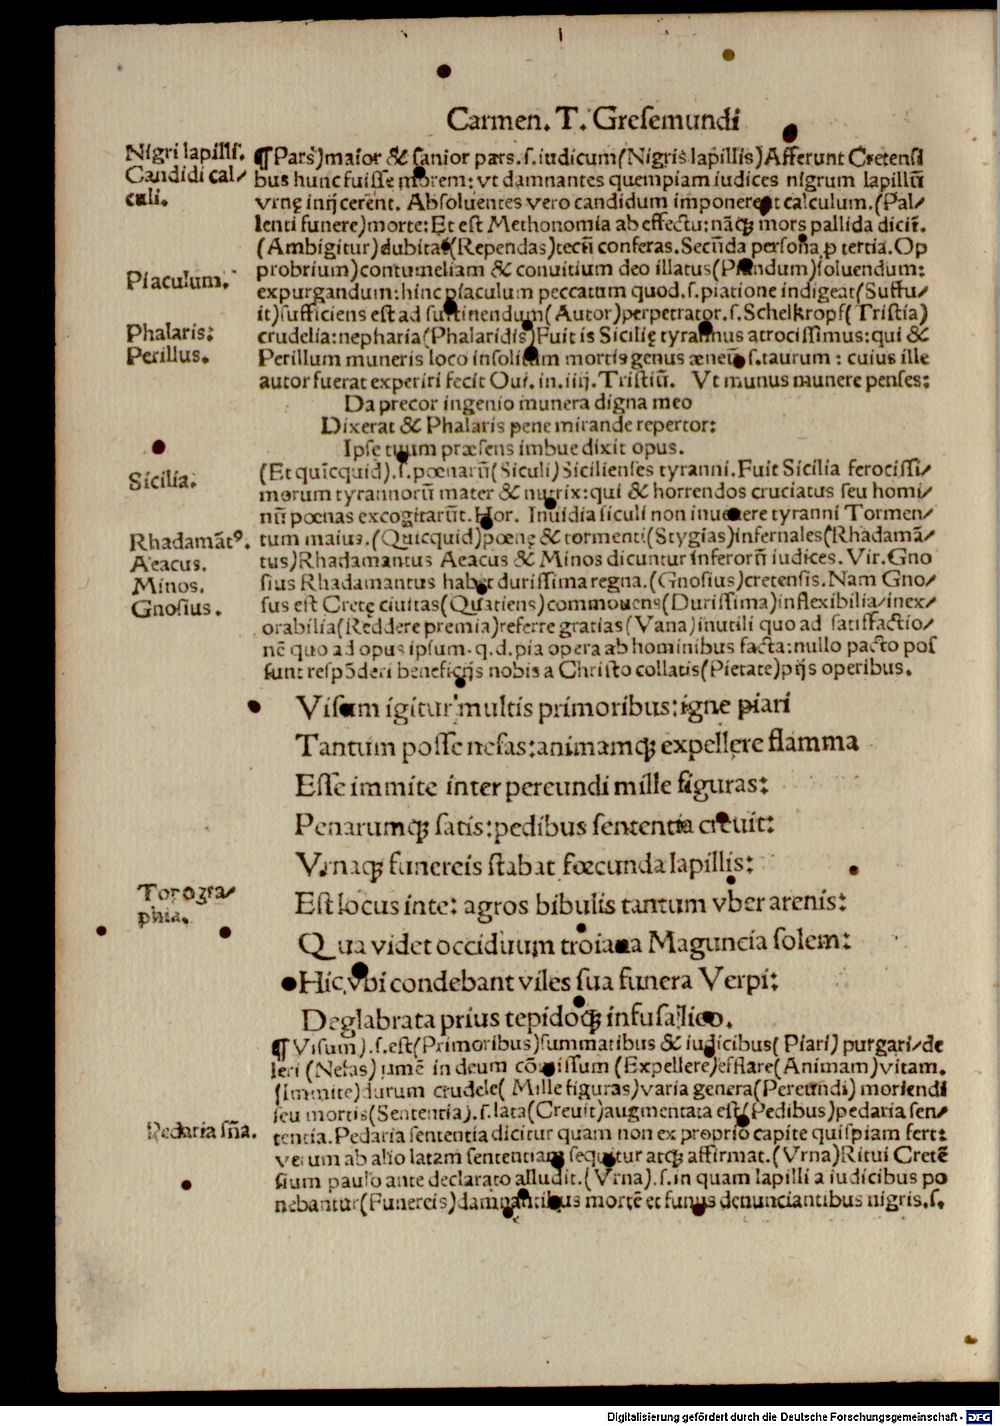 Carmen. T. Gresemundi
Nigri lapilli.
Candidi cal/
culi.
¶Pars)maior & sanior pars.s.iudicum(Nigris lapillis)Afferunt Cretensi
bus hunc fuisse morem: vt damnantes quempiam iudices nigrum lapillũ
vrnę inijcerent. Absoluentes vero candidum imponerent calculum.(Pal/
lenti funere)morte: Et est Methonomia ab effectu: nãqꝫ mors pallida dicit̃.
(Ambigitur)dubitat(Rependas)tecũ conferas. Secũda persona ꝓ tertia. Op
Piaculum.
probrium)contumeliam & conuitium deo illatus(Piandum)soluendum:
expurgandum: hinc piaculum peccatum quod.s.piatione indigeat(Suffu/
it)sufficiens est ad sustinendum(Autor)perpetrator.s.Schelkropf(Tristia)
Phalaris:
Perillus.
crudelia: nepharia(Phalaridis)Fuit is Sicilię tyrannus atrocissimus: qui &
Perillum muneris loco insolitum mortis genus æneũ.s.taurum: cuius ille
autor fuerat experiri fecit Oui. in. iiij. Tristiũ. Vt munus munere penses:
Da precor ingenio munera digna meo
Dixerat & Phalaris pene mirande repertor:
Ipse tuum præsens imbue dixit opus.
Sicilia.
(Et quĩcquid).s.pœnarũ(Siculi)Sicilienses tyranni. Fuit Sicilia ferocissi/
morum tyrannorũ mater & nutrix: qui & horrendos cruciatus seu homi/
nũ pœnas excogitarũt. Hor. Inuidia siculi non inuenere tyranni Tormen/
Rhadamãtꝰ.
Aeacus.
Minos.
Gnosius.
tum maius.(Quicquid)pœnę & tormenti(Stygias)infernales(Rhadamã/
tus)Rhadamantus Aeacus & Minos dicuntur inferorũ iudices. Vir. Gno
sius Rhadamantus habet durissima regna.(Gnosius)cretensis. Nam Gno/
sus est Cretę ciuitas(Quatiens)commouens(Durissima)inflexibilia/inex/
orabilia(Reddere premia)referre gratias(Vana)inutili quo ad satisfactio/
nẽ quo ad opus ipsum. q.d. pia opera ab hominibus facta: nullo pacto pos
sunt respõderi beneficijs nobis a Christo collatis(Pietate)pijs operibus.
Visum igitur multis primoribus: igne piari
Tantum posse nefas: animamqꝫ expellere flamma
Esse immite inter pereundi mille figuras:
Penarumqꝫ satis: pedibus sententia creuit:
Vrnaqꝫ funereis stabat fœcunda lapillis:
Topogra/
phia.
Est locus inter agros bibulis tantum vber arenis:
Qua videt occiduum troiana Maguncia solem:
Hic vbi condebant viles sua funera Verpi:
Deglabrata prius tepidoqꝫ infusa lico.
¶Visum).s.est(Primoribus)summatibus & iudicibus(Piari)purgari/de
leri(Nefas) in deum cõmissum(Expellere)efflare(Animam)vitam.
(Immite)durum crudele(Mille figuras)varia genera(Pereundi)moriendi
seu mortis(Sententia).s.lata(Creuit)augmentata est(Pedibus)pedaria sen/
Pedaria sñia.
tentia. Pedaria sententia dicitur quam non ex proprio capite quispiam fert:
verum ab alio latam sententiam sequitur atqꝫ affirmat.(Vrna)Ritui Cretẽ
sium paulo ante declarato alludit.(Vrna).s.in quam lapilli a iudicibus po
nebantur(Funereis)damnantibus mortẽ et funus denunciantibus nigris.s.
Digitalisierung gefördert durch die Deutsche Forschungsgemeinschaft - DFG